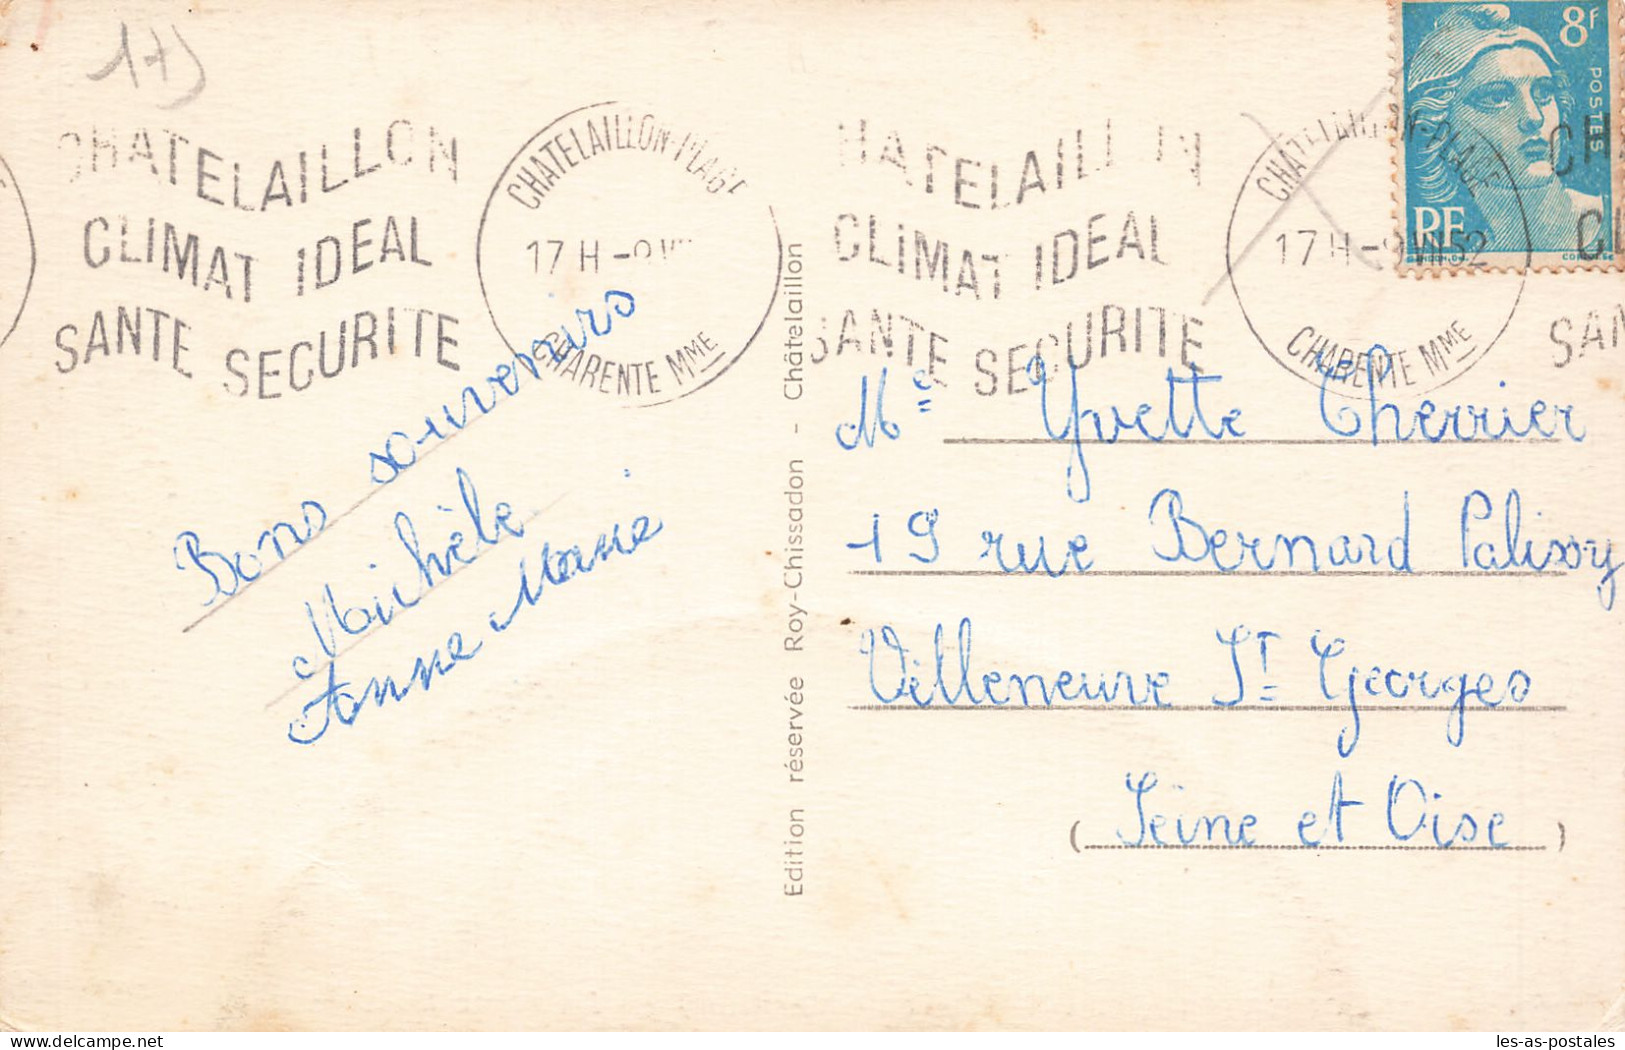 17)
CHATELAILLON
CLIMAT IDEAL
SANTE SECURITE
CHATELAILLON-PLAGE
17 H -9 V
CHARENTE MME
HATELAILLON
CLIMAT IDEAL
SANTE SECURITE
CHATELAILLON-PLAGE
17 H - 9 VII 52
CHARENTE MME
8F
POSTES
RF
CH
CL
SAN
Bons souvenirs
Michèle
Anne Marie
Edition réservée Roy-Chissadon - Châtelaillon
Mᶜ Yvette Cherrier
19 rue Bernard Palissy
Villeneuve St Georges
(Seine et Oise)
les-as-postales